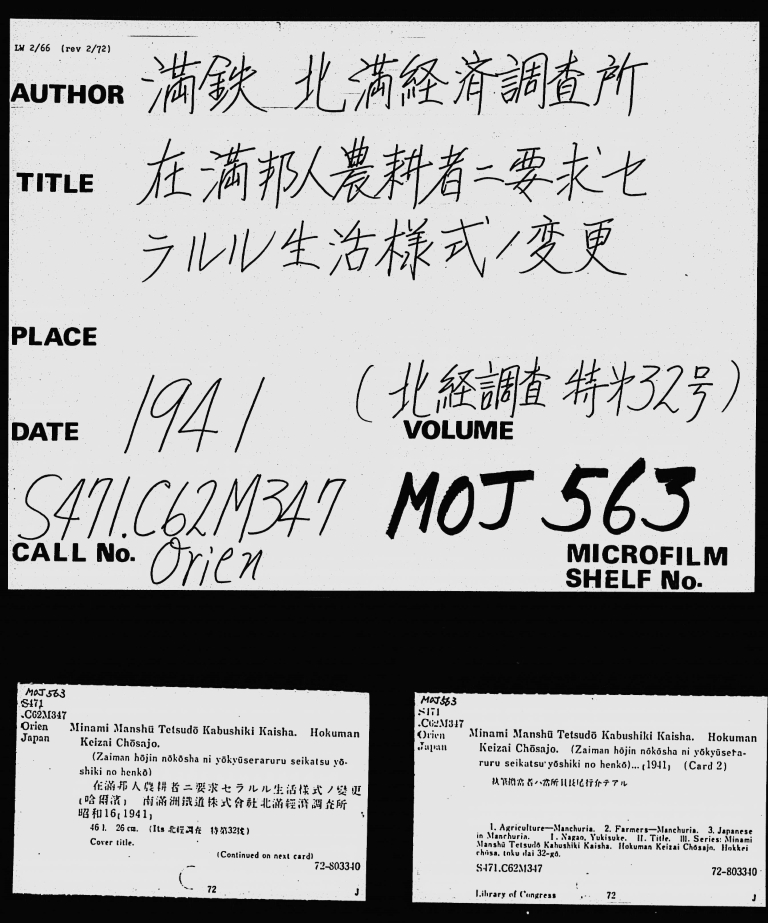 LW 2/66 (rev 2/72)
AUTHOR 満鉄 北満経済調査所
TITLE 在満邦人農耕者ニ要求セ
ラルル生活様式ノ変更
PLACE
(北経調査 特第32号)
DATE 1941 VOLUME
S471.C62M347 MOJ 563
CALL No. Orien
MICROFILM
SHELF No.
MOJ 563
S471
.C62M347
Orien
Japan
Minami Manshū Tetsudō Kabushiki Kaisha. Hokuman
Keizai Chōsajo.
(Zaiman hōjin nōkōsha ni yōkyūseraruru seikatsu yō-
shiki no henkō)
在滿邦人農耕者ニ要求セラルル生活樣式ノ變更
[哈爾濱] 南滿洲鐵道株式會社北滿經濟調査所
昭和16[1941]
46 l. 26 cm. (Its 北經調査 特第32號)
Cover title.
(Continued on next card)
72-803340
72 J
MOJ 563
S471
.C62M347
Orien
Japan
Minami Manshū Tetsudō Kabushiki Kaisha. Hokuman
Keizai Chōsajo. (Zaiman hōjin nōkōsha ni yōkyūsera-
ruru seikatsu yōshiki no henkō)... [1941] (Card 2)
執筆擔當者ハ當所員長尾行介テアル
1. Agriculture—Manchuria. 2. Farmers—Manchuria. 3. Japanese
in Manchuria. I. Nagao, Yukisuke. II. Title. III. Series: Minami
Manshū Tetsudō Kabushiki Kaisha. Hokuman Keizai Chōsajo. Hokkei
chōsa, toku dai 32-gō.
S471.C62M347 72-803340
Library of Congress 72 J